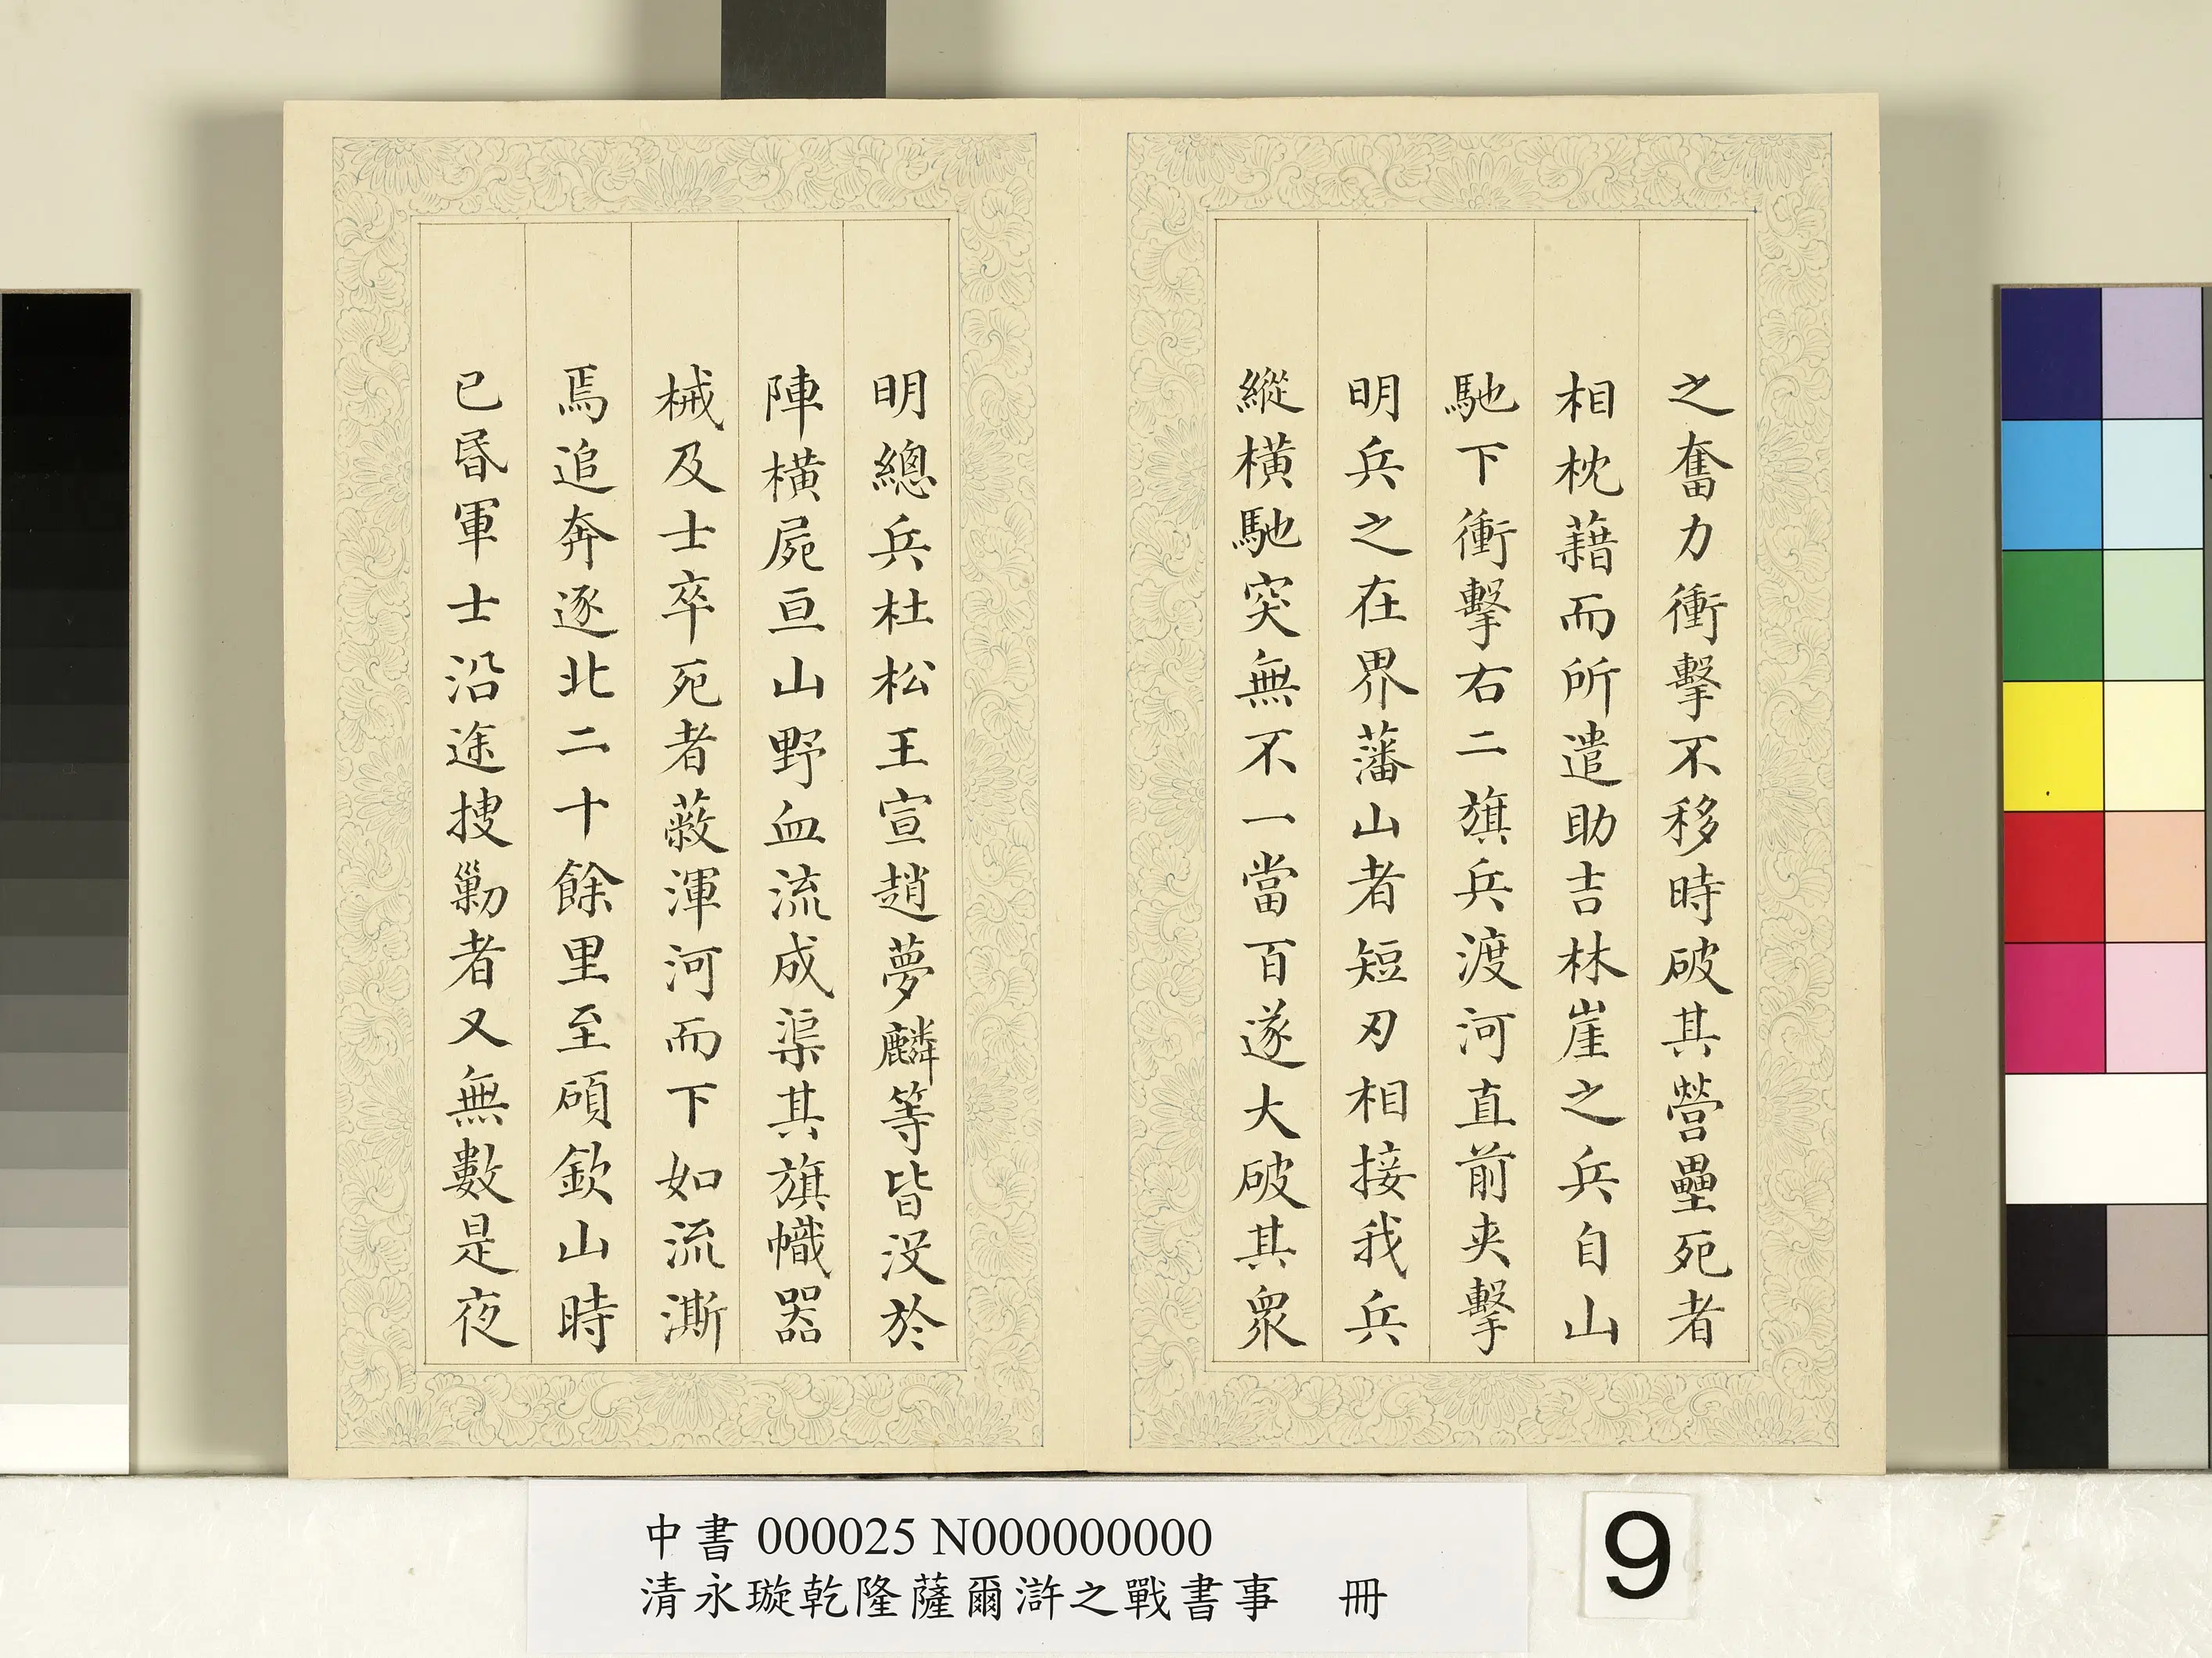 之奮力衝擊不移時破其營壘死者
相枕藉而所遣助吉林崖之兵自山
馳下衝擊右二旗兵渡河直前夾擊
明兵之在界藩山者短刃相接我兵
縱橫馳突無不一當百遂大破其衆
明總兵杜松王宣趙夢麟等皆沒於
陣橫屍亘山野血流成渠其旗幟器
械及士卒死者蔽渾河而下如流澌
焉追奔逐北二十餘里至碩欽山時
已昬軍士沿途搜勦者又無數是夜
中書 000025 N000000000
清永璇乾隆薩爾滸之戰書事 冊
9